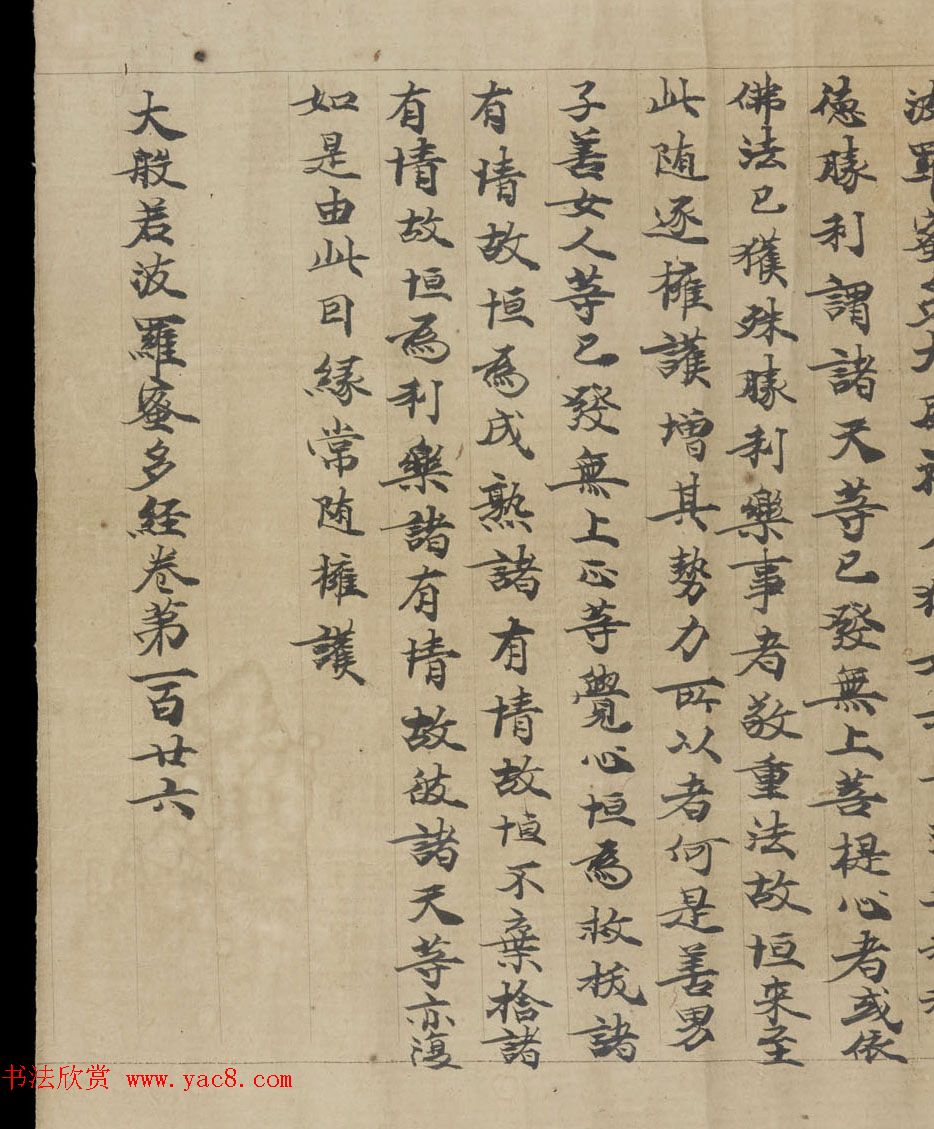 波羅蜜多大
德勝利謂諸天等已發無上菩提心者或依
佛法已獲殊勝利樂事者敬重法故恒来至
此随逐擁護增其勢力所以者何是善男
子善女人等已發無上正等覺心恒為救拔諸
有情故恒為成熟諸有情故恒不棄捨諸
有情故恒為利樂諸有情故彼諸天等亦復
如是由此因緣常随擁護
大般若波羅蜜多経卷第一百廿六
书法欣赏 www.yac8.com